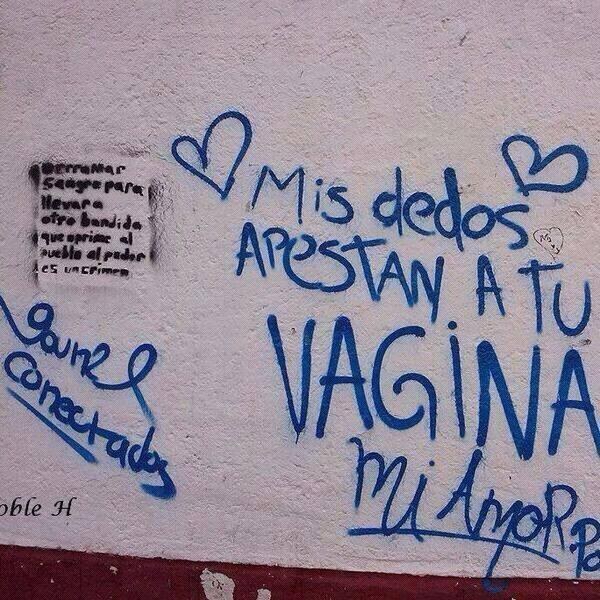 Derramar
sangre para
llevar a
otro bandido
que oprime al
pueblo al poder
es un crimen
Mis dedos
APESTAN A TU
VAGINA
Mi AmoR
Conectados
oble H